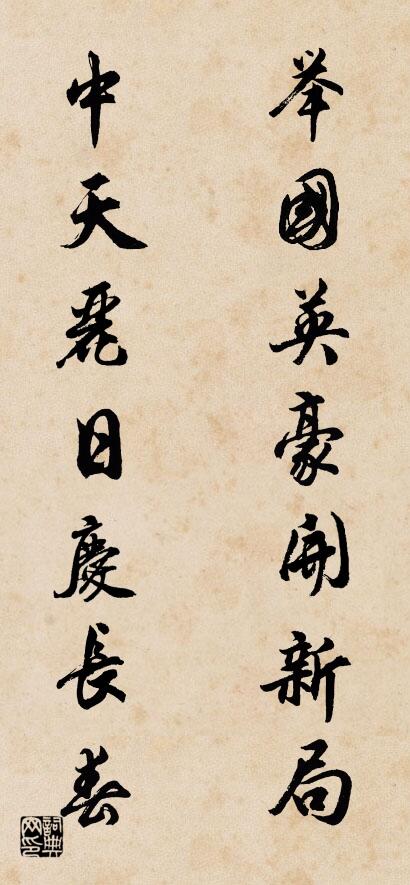 举國英豪開新局
中天麗日慶長春
詞典网印